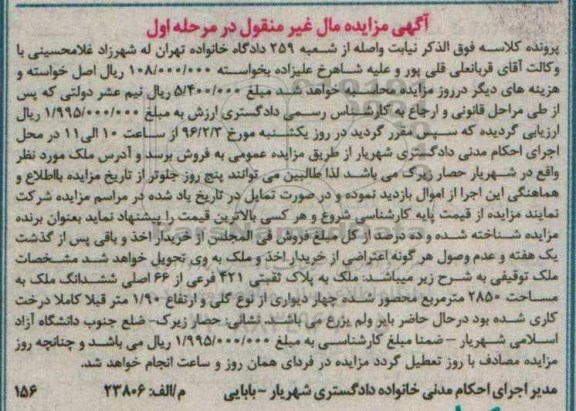 آگهی مزایده مال غیر منقول در مرحله اول
پرونده کلاسه فوق الذکر نیابت واصله از شعبه ۲۵۹ دادگاه خانواده تهران له شهرزاد غلامحسینی با
وکالت آقای قربانعلی قلی پور و علیه شاهرخ علیزاده بخواسته ۱۰۸/۰۰۰/۰۰۰ ریال اصل خواسته و
هزینه های دیگر درروز مزایده محاسبه خواهد شد مبلغ ۵/۴۰۰/۰۰۰ ریال نیم عشر دولتی که پس
از طی مراحل قانونی و ارجاع به کارشناس رسمی دادگستری ارزش به مبلغ ۱/۹۹۵/۰۰۰/۰۰۰ ریال
ارزیابی گردیده که سپس مقرر گردید در روز یکشنبه مورخ ۹۶/۲/۳ از ساعت ۱۰ الی۱۱ در محل
اجرای احکام مدنی دادگستری شهریار از طریق مزایده عمومی به فروش برسد و آدرس ملک مورد نظر
واقع در شهریار حصار زیرک می باشد لذا طالبین می توانند پنج روز جلوتر از تاریخ مزایده بااطلاع و
هماهنگی این اجرا از اموال بازدید نموده و در صورت تمایل در تاریخ یاد شده در مراسم مزایده شرکت
نمایند مزایده از قیمت پایه کارشناسی شروع و هر کسی بالاترین قیمت را پیشنهاد نماید بعنوان برنده
مزایده شناخته شده و ده درصد از کل مبلغ فروش فی المجلس از خریدار اخذ و باقی پس از گذشت
یک هفته و عدم وصول هر گونه اعتراضی از خریدار اخذ و ملک به وی تحویل خواهد شد مشخصات
ملک توقیفی به شرح زیر میباشد: ملک به پلاک ثبتی ۴۲۱ فرعی از ۶۶ اصلی ششدانگ ملک به
مساحت ۲۸۵۰ مترمربع محصور شده چهار دیواری از نوع گلی و ارتفاع ۱/۹۰ متر قبلا کاملا درخت
کاری شده بود درحال حاضر بایر ولم یزرع می باشد. نشانی: حصار زیرک- ضلع جنوب دانشگاه آزاد
اسلامی شهریار – ضمنا مبلغ کارشناسی به مبلغ ۱/۹۹۵/۰۰۰/۰۰۰ ریال می باشد و چنانچه روز
مزایده مصادف با روز تعطیل گردد مزایده در فردای همان روز و ساعت انجام خواهد شد.
مدیر اجرای احکام مدنی خانواده دادگستری شهریار – بابایی م/الف: ۲۳۸۰۶ ۱۵۶